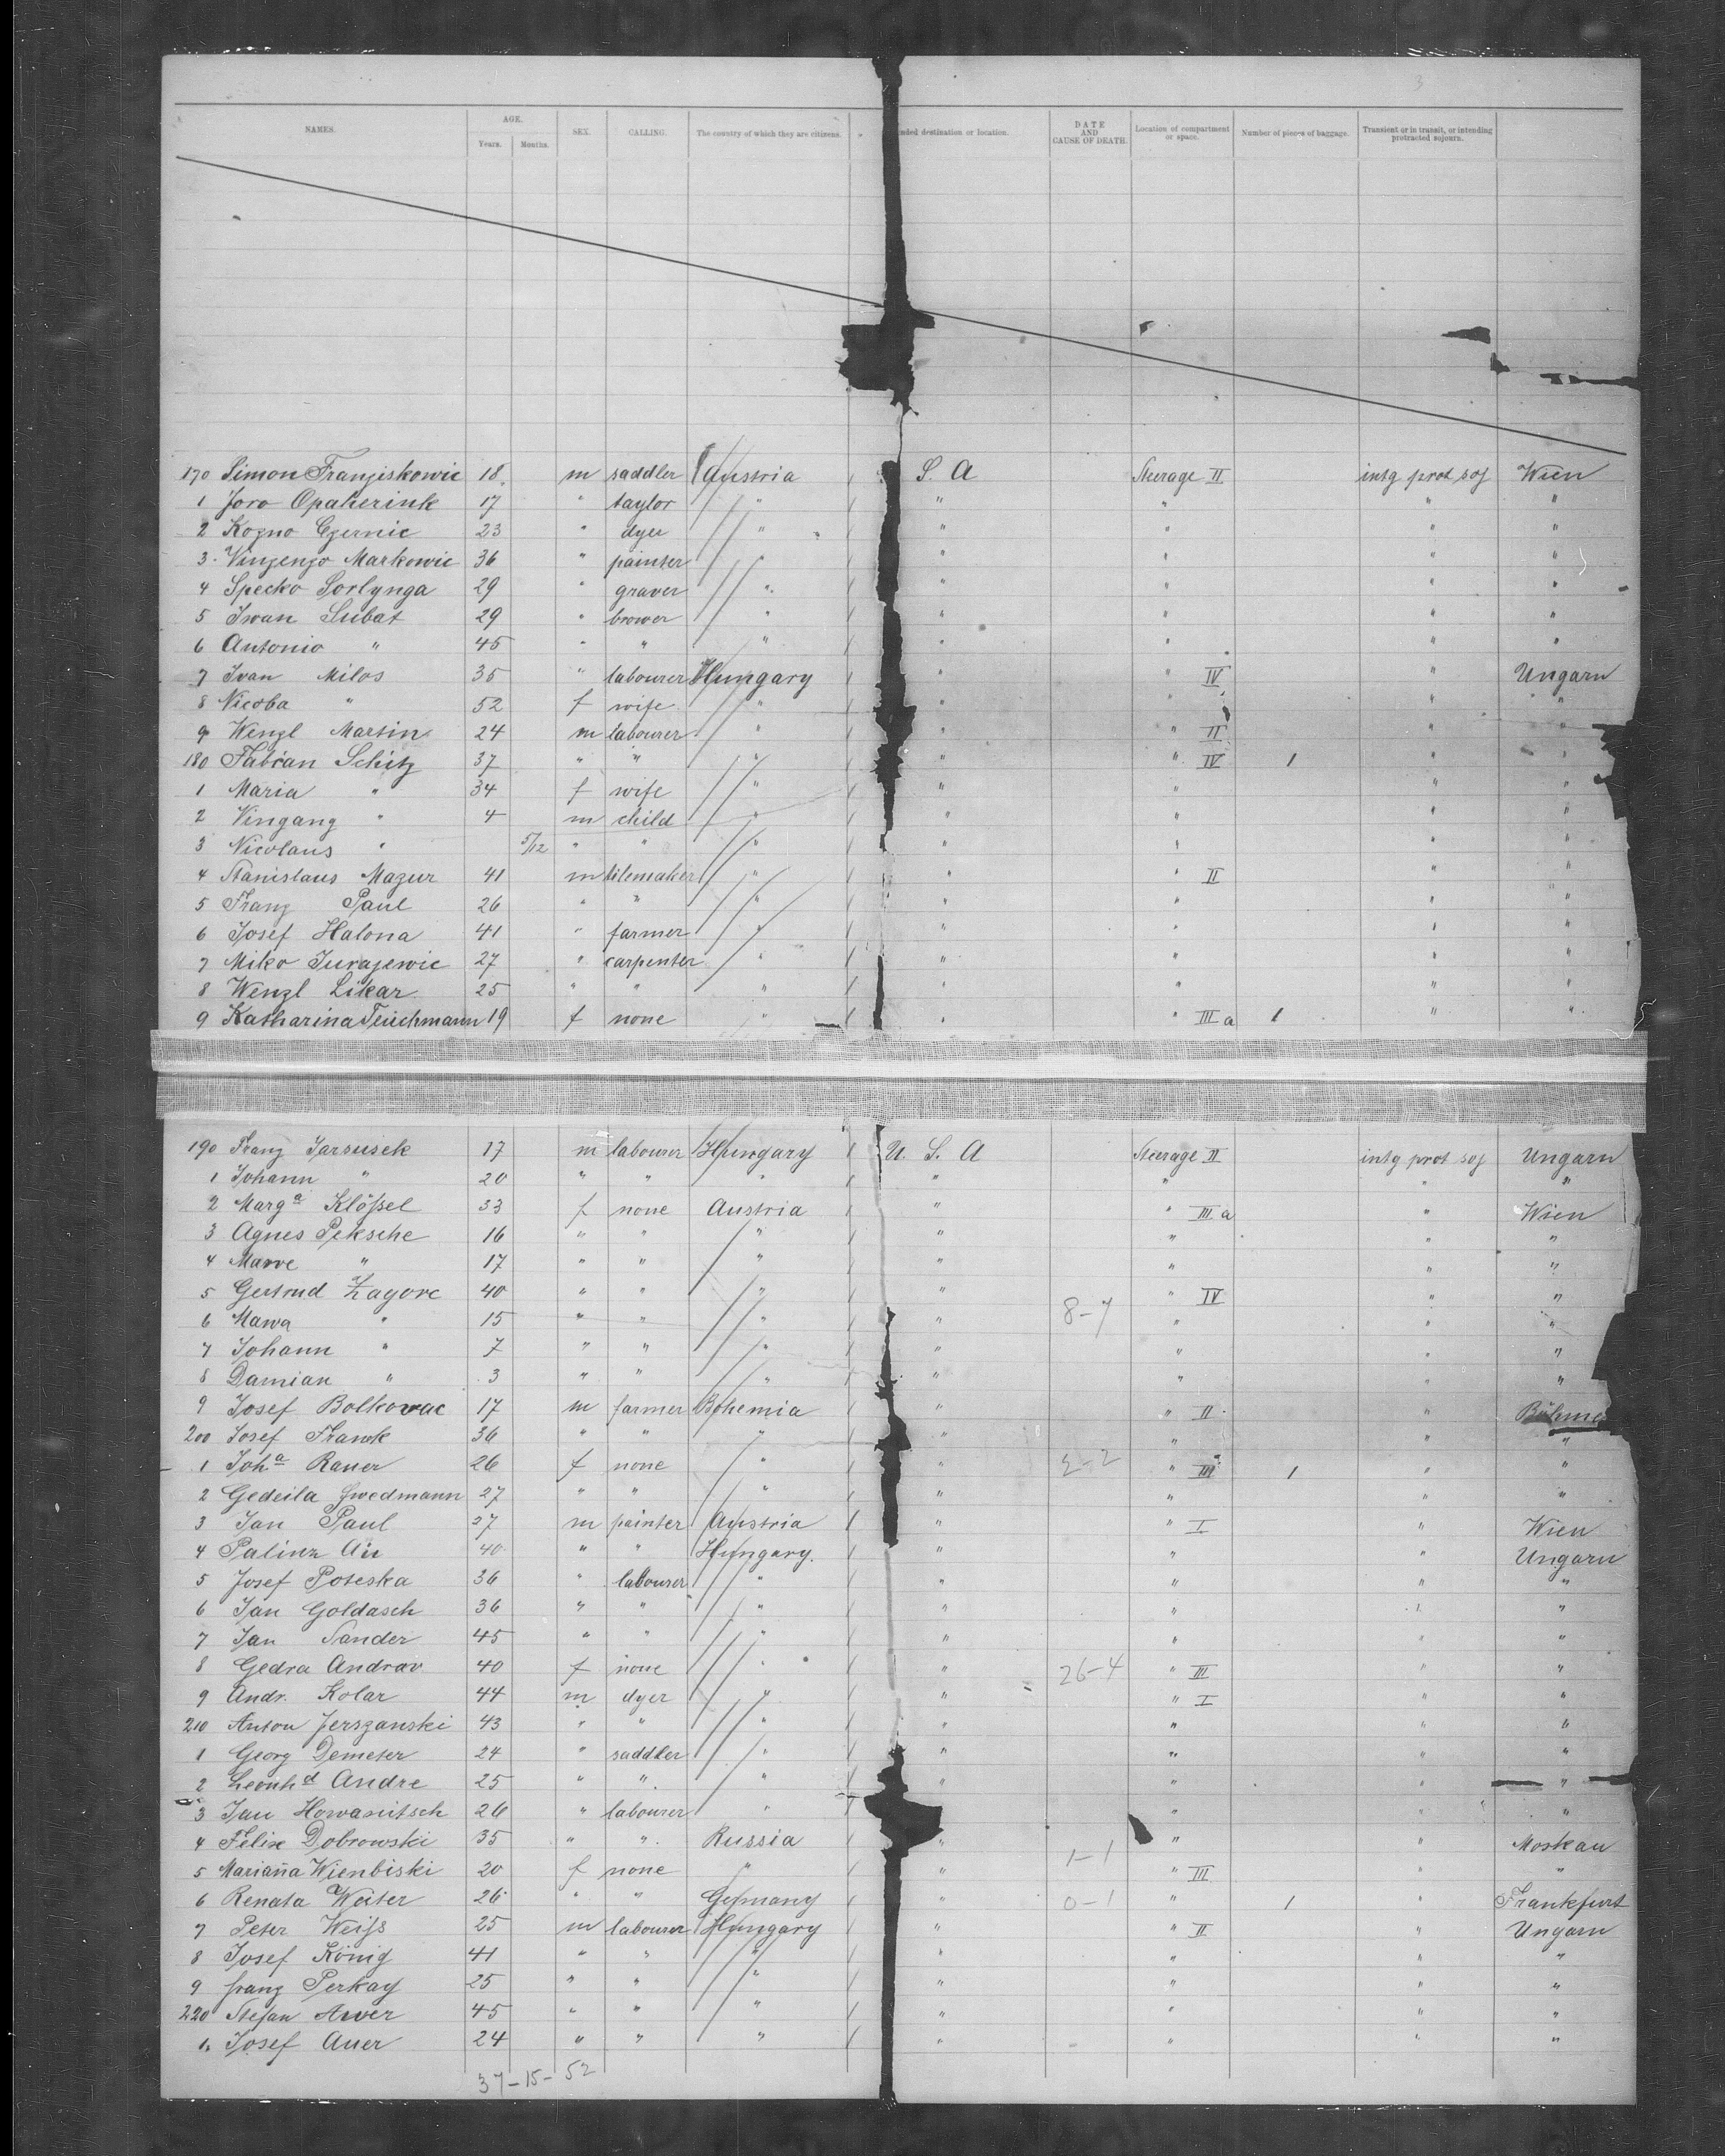 3
NAMES. AGE. Years. Months. SEX. CALLING. The country of which they are citizens. nded destination or location. DATE AND CAUSE OF DEATH. Location of compartment or space. Number of pieces of baggage. Transient or in transit, or intending protracted sojourn.
170 Simon Franjiskowic 18 m saddler Austria 1 S. A Steerage II intg prot soj Wien
1 Joro Opaherink 17 " taylor " 1 " " " "
2 Kozno Czernic 23 " dyer " 1 " " " "
3 Vinzenzo Markowic 36 " painter " 1 " " " "
4 Specko Sorlynga 29 " graver " 1 " " " "
5 Iwan Subat 29 " brower " 1 " " " "
6 Antonio " 45 " " " 1 " " " "
7 Ivan Milos 35 " labourer Hungary 1 " " IV " Ungarn
8 Nicoba " 52 f wife " 1 " " " "
9 Wenzl Martin 24 m labourer " 1 " " II " "
180 Fabian Schitz 37 " " " 1 " " IV 1 " "
1 Maria " 34 f wife " 1 " " " "
2 Vingang " 4 m child " 1 " " " "
3 Nicolaus " 5/12 " " " 1 " " " "
4 Stanislaus Mazur 41 m tilemaker " 1 " " II " "
5 Franz Paul 26 " " " 1 " " " "
6 Josef Halona 41 " farmer " 1 " " " "
7 Miko Jurajewic 27 " carpenter " 1 " " " "
8 Wenzl Likar 25 " " " 1 " " " "
9 Katharina Teuchmann 19 f none " 1 " " III a 1 " "
190 Franz Jarsusek 17 m labourer Hungary 1 U. S. A Steerage II intg prot soj Ungarn
1 Johann " 20 " " " 1 " " " "
2 Marg a Klößel 33 f none Austria 1 " " III a " Wien
3 Agnes Peksche 16 " " " 1 " " " "
4 Marre " 17 " " " 1 " " " "
5 Gertrud Zagorc 40 " " " 1 " " IV " "
6 Mawa " 15 " " " 1 " 8-7 " " "
7 Johann " 7 " " " 1 " " " "
8 Damian " 3 " " " 1 " " " "
9 Josef Bolkovac 17 m farmer Bohemia 1 " " II " Böhme
200 Josef Frank 36 " " " 1 " " " "
1 Joh a Rauer 26 f none " 1 " 2-2 " III 1 " "
2 Gedeila Zwedmann 27 " " " 1 " " " "
3 Jan Paul 27 m painter Austria 1 " " I " Wien
4 Palinz 40 " " Hungary. 1 " " " Ungarn
5 Josef Poteska 36 " labourer " 1 " " " "
6 Jan Goldasch 36 " " " 1 " " " "
7 Jan Sander 45 " " " 1 " " " "
8 Gedra Andrav 40 f none " 1 " 26-4 " III " "
9 Andr. Kolar 44 m dyer " 1 " " I " "
210 Anton Jerszanski 43 " " " 1 " " " "
1 Georg Demeter 24 " saddler " 1 " " " "
2 Leonh d Andre 25 " " " 1 " " " "
3 Jan Howanitsch 26 " labourer " 1 " " "
4 Felix Dobrowski 35 " " Russia 1 " " " Moskau
5 Marianna Wienbiski 20 f none " 1 " 1-1 " III " "
6 Renata Weiter 26 " " Germany 1 " 0-1 " 1 " Frankfurt
7 Peter Weifs 25 m labourer Hungary 1 " " II " Ungarn
8 Josef König 41 " " " 1 " " " "
9 Franz Perkay 25 " " " 1 " " " "
220 Stefan Awer 45 " " " 1 " " " "
1. Josef Auer 24 " " " 1 " " " "
37-15-52